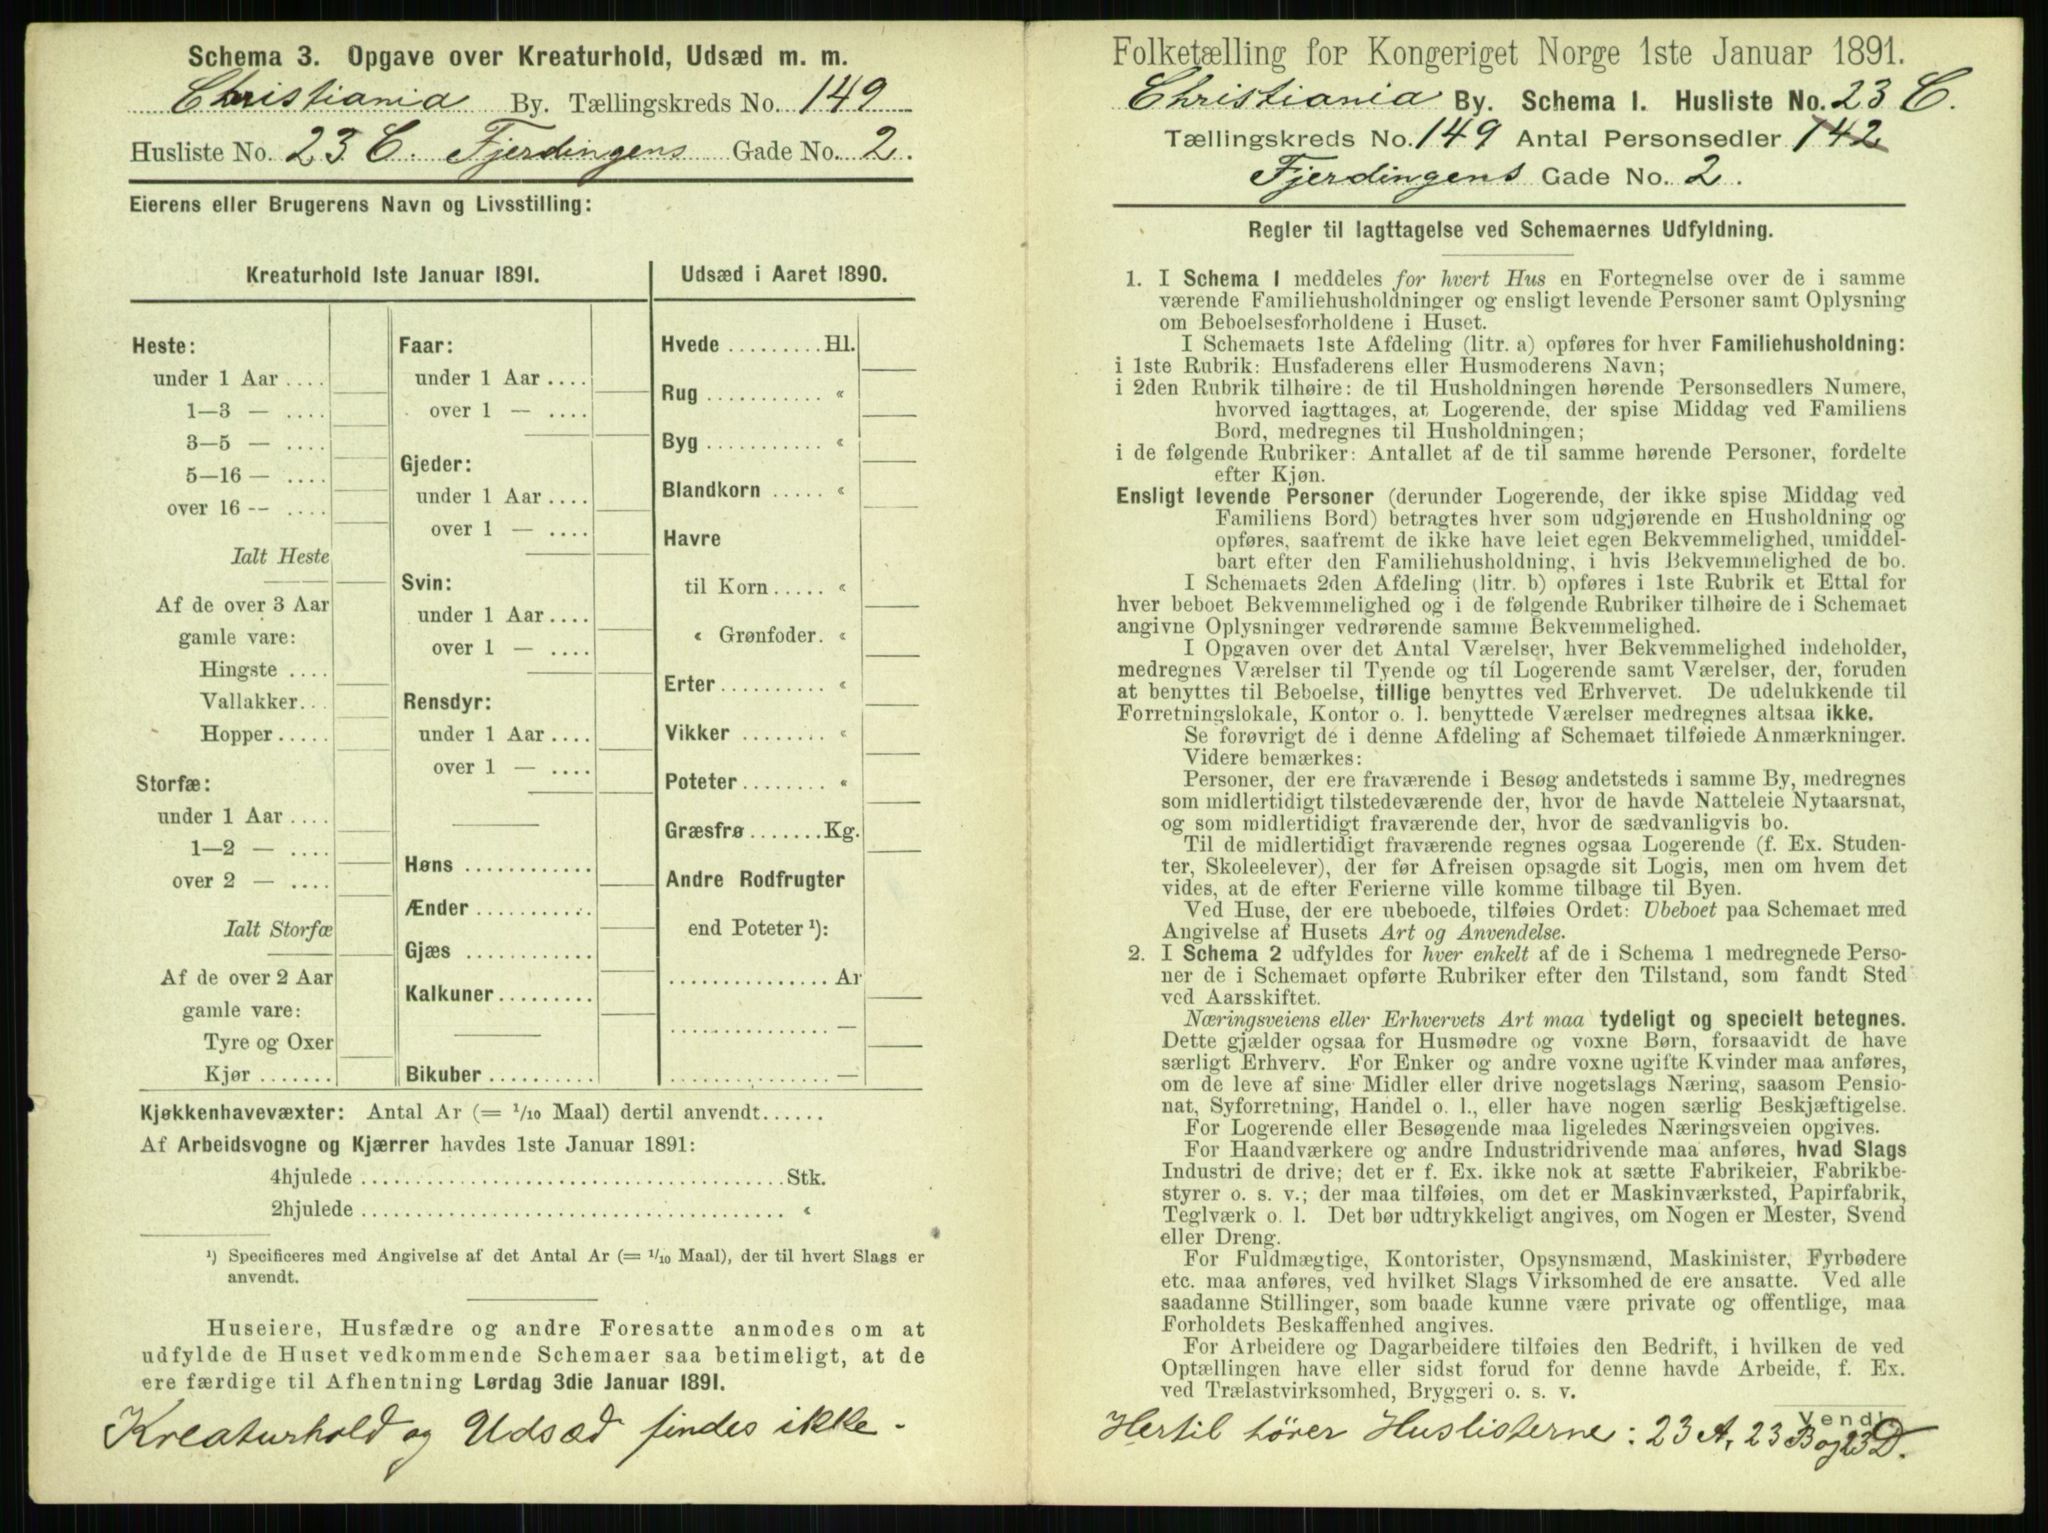 Schema 3. Opgave over Kreaturhold, Udsæd m. m.
Christiania By. Tællingskreds No. 149
Husliste No. 23 C. Fjerdingens Gade No. 2.
Eierens eller Brugerens Navn og Livsstilling:
Kreaturhold 1ste Januar 1891.
Heste:
under 1 Aar ....
1—3 — ....
3—5 — ....
5—16 — ....
over 16 -- ....
Ialt Heste
Af de over 3 Aar
gamle vare:
Hingste ....
Vallakker...
Hopper .....
Storfæ:
under 1 Aar ....
1—2 — ....
over 2 — ....
Ialt Storfæ
Af de over 2 Aar
gamle vare:
Tyre og Oxer
Kjør .......
Faar:
under 1 Aar ....
over 1 — ....
Gjeder:
under 1 Aar ....
over 1 — ....
Svin:
under 1 Aar ....
over 1 — ....
Rensdyr:
under 1 Aar ....
over 1 — ....
Høns ............
Ænder ...........
Gjæs ............
Kalkuner.........
Bikuber ..........
Udsæd i Aaret 1890.
Hvede .........Hl.
Rug ........... «
Byg ........... «
Blandkorn ..... «
Havre
til Korn..... «
« Grønfoder. «
Erter.......... «
Vikker ........ «
Poteter........ «
Græsfrø .......Kg.
Andre Rodfrugter
end Poteter ¹):
............... Ar
............... —
............... —
Kjøkkenhavevæxter: Antal Ar (= 1/10 Maal) dertil anvendt......
Af Arbeidsvogne og Kjærrer havdes 1ste Januar 1891:
4hjulede ........................................Stk.
2hjulede ........................................ «
¹) Specificeres med Angivelse af det Antal Ar (= 1/10 Maal), der til hvert Slags er
anvendt.
Huseiere, Husfædre og andre Foresatte anmodes om at
udfylde de Huset vedkommende Schemaer saa betimeligt, at de
ere færdige til Afhentning Lørdag 3die Januar 1891.
Kreaturhold og Udsæd findes ikke -
Folketælling for Kongeriget Norge 1ste Januar 1891.
Christiania By. Schema 1. Husliste No. 23 C.
Tællingskreds No. 149 Antal Personsedler 142
Fjerdingens Gade No. 2.
Regler til Iagttagelse ved Schemaernes Udfyldning.
1. I Schema 1 meddeles for hvert Hus en Fortegnelse over de i samme
værende Familiehusholdninger og ensligt levende Personer samt Oplysning
om Beboelsesforholdene i Huset.
I Schemaets 1ste Afdeling (litr. a) opføres for hver Familiehusholdning:
i 1ste Rubrik: Husfaderens eller Husmoderens Navn;
i 2den Rubrik tilhøire: de til Husholdningen hørende Personsedlers Numere,
hvorved iagttages, at Logerende, der spise Middag ved Familiens
Bord, medregnes til Husholdningen;
i de følgende Rubriker: Antallet af de til samme hørende Personer, fordelte
efter Kjøn.
Ensligt levende Personer (derunder Logerende, der ikke spise Middag ved
Familiens Bord) betragtes hver som udgjørende en Husholdning og
opføres, saafremt de ikke have leiet egen Bekvemmelighed, umiddel-
bart efter den Familiehusholdning, i hvis Bekvemmelighed de bo.
I Schemaets 2den Afdeling (litr. b) opføres i 1ste Rubrik et Ettal for
hver beboet Bekvemmelighed og i de følgende Rubriker tilhøire de i Schemaet
angivne Oplysninger vedrørende samme Bekvemmelighed.
I Opgaven over det Antal Værelser, hver Bekvemmelighed indeholder,
medregnes Værelser til Tyende og til Logerende samt Værelser, der, foruden
at benyttes til Beboelse, tillige benyttes ved Erhvervet. De udelukkende til
Forretningslokale, Kontor o. l. benyttede Værelser medregnes altsaa ikke.
Se forøvrigt de i denne Afdeling af Schemaet tilføiede Anmærkninger.
Videre bemærkes:
Personer, der ere fraværende i Besøg andetsteds i samme By, medregnes
som midlertidigt tilstedeværende der, hvor de havde Natteleie Nytaarsnat,
og som midlertidigt fraværende der, hvor de sædvanligvis bo.
Til de midlertidigt fraværende regnes ogsaa Logerende (f. Ex. Studen-
ter, Skoleelever), der før Afreisen opsagde sit Logis, men om hvem det
vides, at de efter Ferierne ville komme tilbage til Byen.
Ved Huse, der ere ubeboede, tilføies Ordet: Ubeboet paa Schemaet med
Angivelse af Husets Art og Anvendelse.
2. I Schema 2 udfyldes for hver enkelt af de i Schema 1 medregnede Perso-
ner de i Schemaet opførte Rubriker efter den Tilstand, som fandt Sted
ved Aarsskiftet.
Næringsveiens eller Erhvervets Art maa tydeligt og specielt betegnes.
Dette gjælder ogsaa for Husmødre og voxne Børn, forsaavidt de have
særligt Erhverv. For Enker og andre voxne ugifte Kvinder maa anføres,
om de leve af sine Midler eller drive nogetslags Næring, saasom Pensio-
nat, Syforretning, Handel o. l., eller have nogen særlig Beskjæftigelse.
For Logerende eller Besøgende maa ligeledes Næringsveien opgives.
For Haandværkere og andre Industridrivende maa anføres, hvad Slags
Industri de drive; det er f. Ex. ikke nok at sætte Fabrikeier, Fabrikbe-
styrer o. s. v.; der maa tilføies, om det er Maskinværksted, Papirfabrik,
Teglværk o. l. Det bør udtrykkeligt angives, om Nogen er Mester, Svend
eller Dreng.
For Fuldmægtige, Kontorister, Opsynsmænd, Maskinister, Fyrbødere
etc. maa anføres, ved hvilket Slags Virksomhed de ere ansatte. Ved alle
saadanne Stillinger, som baade kunne være private og offentlige, maa
Forholdets Beskaffenhed angives.
For Arbeidere og Dagarbeidere tilføies den Bedrift, i hvilken de ved
Optællingen have eller sidst forud for denne havde Arbeide, f. Ex.
ved Trælastvirksomhed, Bryggeri o. s. v.
Vend!
Hertil hører Huslisterne: 23 A, 23 B og 23 D.